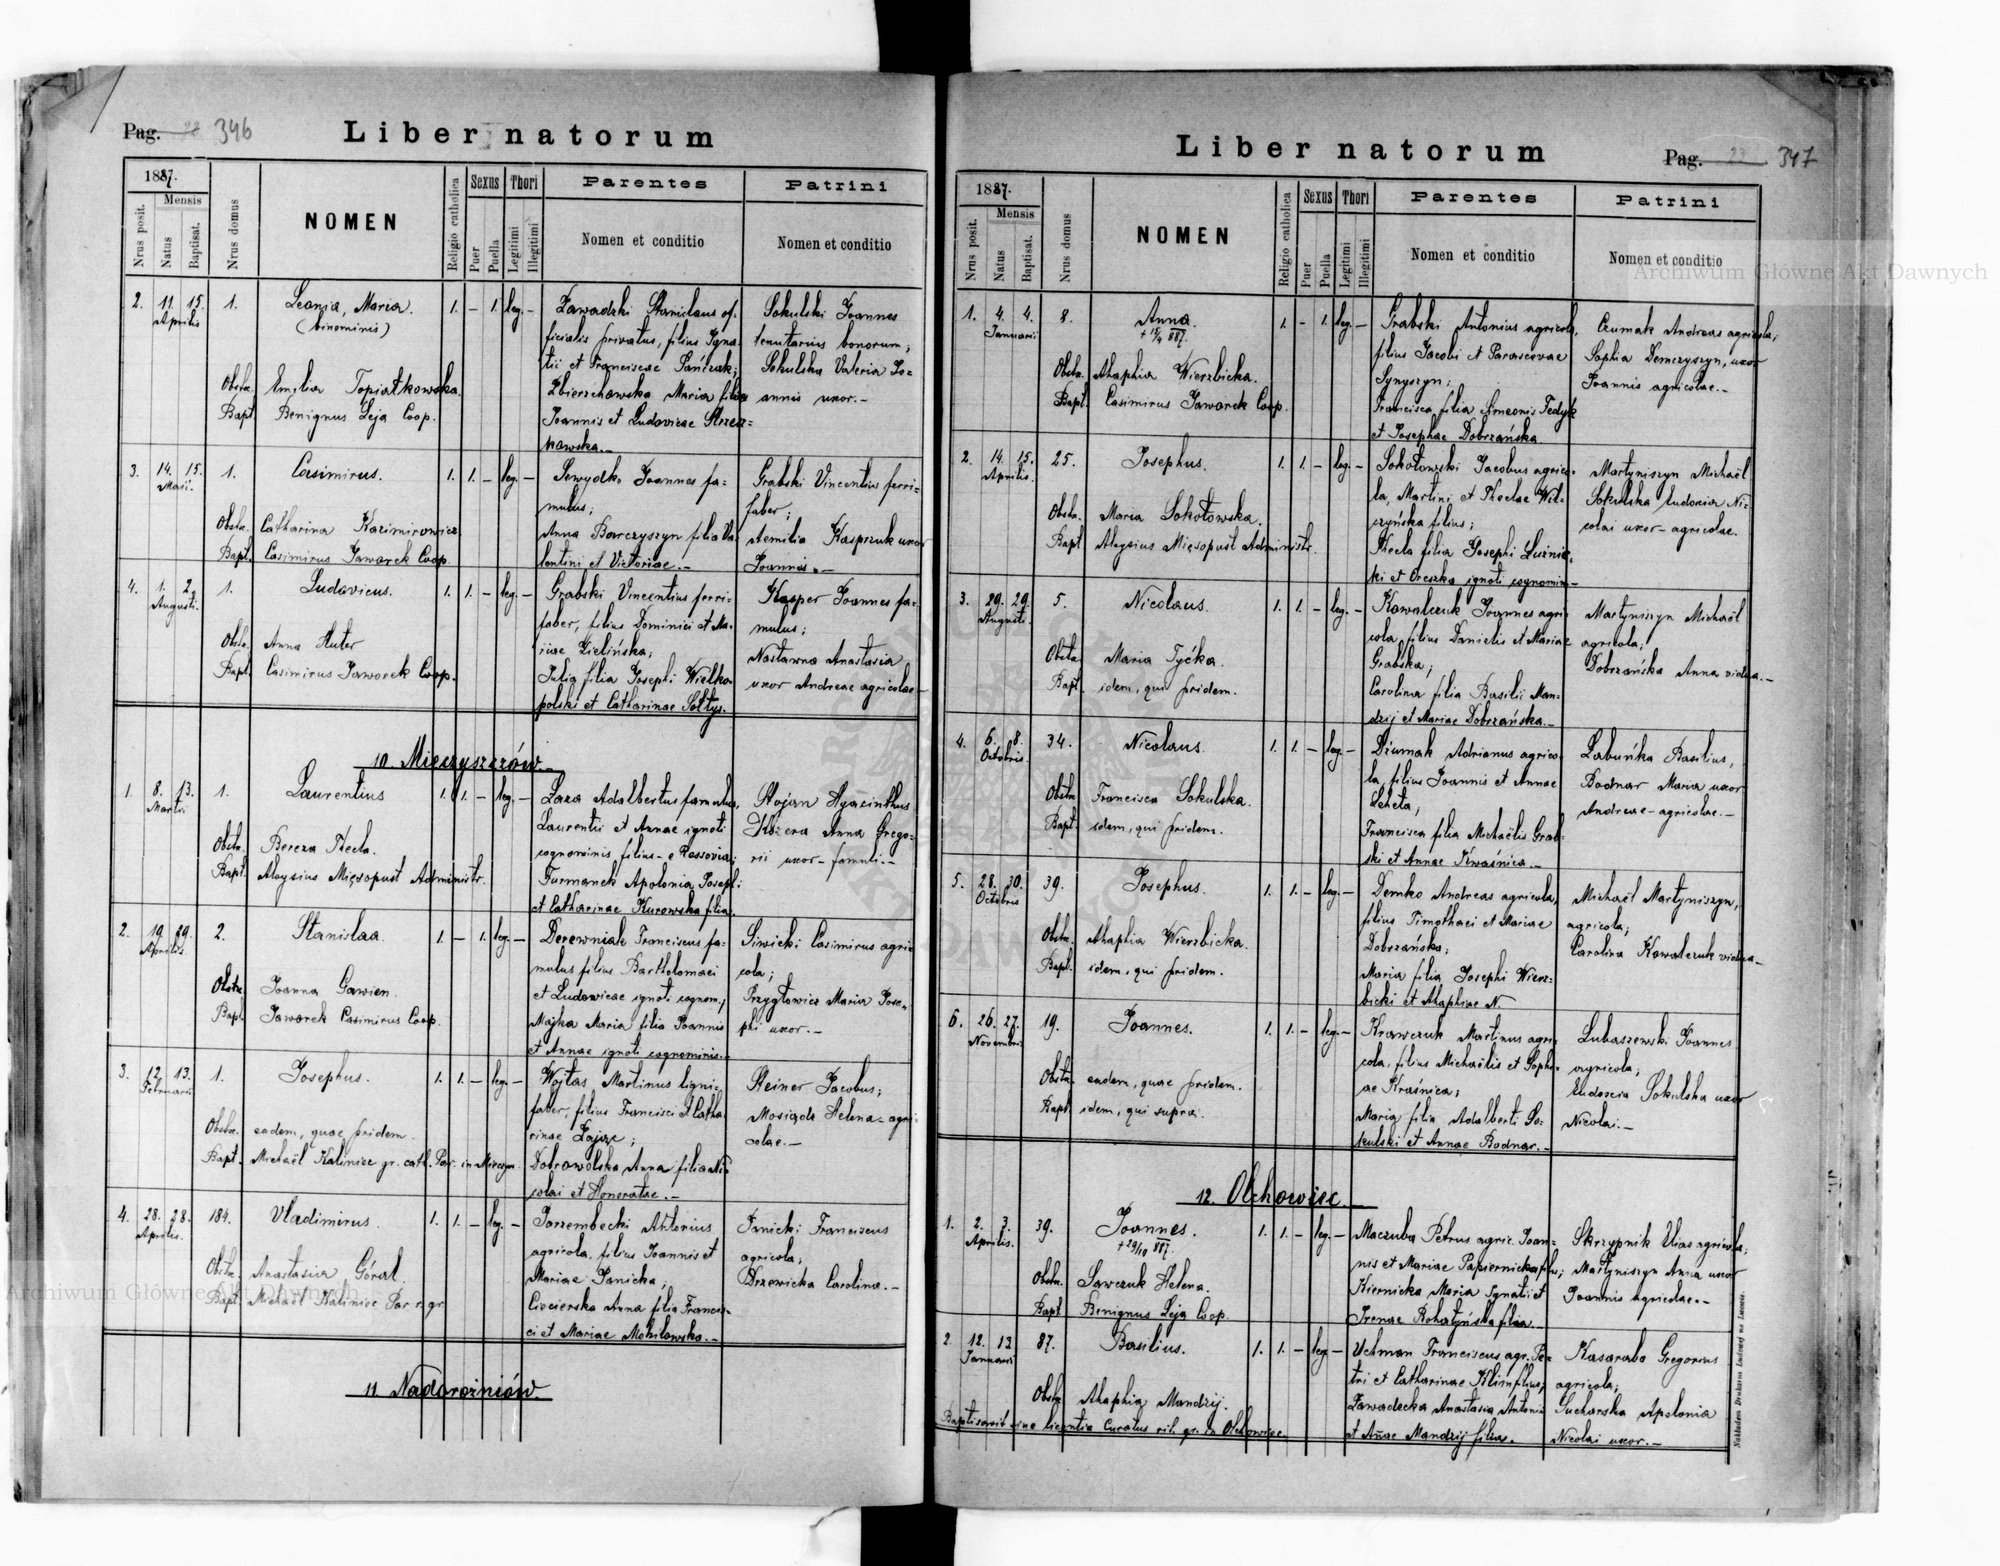 Pag. 22 346
Liber natorum
1887.
Nrus posit.
Mensis
Natus
Baptisat.
Nrus domus
NOMEN
Religio catholica
Sexus
Puer
Puella
Thori
Legitimi
Illegitimi
Parentes
Nomen et conditio
Patrini
Nomen et conditio
2. 11. 15. Aprilis 1. Leonia, Maria. (binominis) 1. – 1. leg. –
Zawadzki Stanislaus of-
ficialis privatus, filius Igna-
tii et Franciscae Pańczuk;
Zbierzchowska Maria filia
Joannis et Ludovicae Strzez-
kowska.–
Sokulski Joannes
tenutarius bonorum;
Sokulska Valeria Jo-
annis uxor.–
Obstx. Emilia Topiatkowska.
Bapt. Benignus Leja Coop.
3. 14. 15. Maii. 1. Casimirus. 1. 1. – leg. –
Joannes fa-
mulus;
Anna Barczyszyn filia Va-
lentini et Victoriae.–
Grabski Vincentius ferri-
faber;
Aemilia Kasprzuk uxor
Joannis.–
Obstx. Catharina Kazimirowicz
Bapt. Casimirus Jaworek Coop.
4. 1. 2. Augusti. 1. Ludovicus. 1. 1. – leg. –
Grabski Vincentius ferri-
faber, filius Dominici et Ma-
riae Zielińska;
Julia filia Josephi Wielko-
polski et Catharinae Sołtys.
Kasper Joannes fa-
mulus;
Nastawna Anastasia
uxor Andreae agricolae–
Obstx. Anna Huter
Bapt. Casimirus Jaworek Coop.
10. Mieczyszczów.
1. 8. 13. Martii 1. Laurentius 1. 1. – leg. –
Zaza Adalbertus famulus,
Laurentii et Annae ignoti
cognominis filius – e Rossovia;
Furmanek Apolonia Josephi
et Catharinae Kurowska filia.
Stojan Hyacinthus
Anna Grego-
rii uxor – famuli.–
Obstx. Bereza Thecla.
Bapt. Aloysius Mięsopust Administr.
2. 19. 29. Aprilis 2. Stanislaa. 1. – 1. leg. –
Derewniak Franciscus fa-
mulus filius Bartholomaei
et Ludovicae ignoti cognom.;
Majka Maria filia Joannis
et Annae ignoti cognominis.–
Siwicki Casimirus agri-
cola;
Przygłowicz Maria Jose-
phi uxor.–
Obstx. Joanna Gawien.
Bapt. Jaworek Casimirus Coop.
3. 12. 13. Februarii 1. Josephus. 1. 1. – leg. –
Wojtas Martinus ligni-
faber, filius Francisci et Catha-
rinae Zając;
Dobrowolska Anna filia Ni-
colai et Honoratae.–
Steiner Jacobus;
Mosiądz Helena – agri-
colae.–
Obstx. eadem, quae pridem.
Bapt. Michaël Kaliniec gr. cath. Par. in Mieczysz.
4. 28. 28. Aprilis. 184. Vladimirus. 1. 1. – leg. –
Porzembecki Antonius
agricola, filius Joannis et
Mariae Janicka;
Ciecierska Anna filia Francis-
ci et Mariae Mohilowska.–
Janicki Franciscus
agricola;
Drzewicka Carolina.–
Obstx. Anastasia Góral.
Bapt. Michaël Kaliniec Par. r. gr.
11. Nadorożniów.
Liber natorum
Pag. 23 347
1887.
Nrus posit.
Mensis
Natus
Baptisat.
Nrus domus
NOMEN
Religio catholica
Sexus
Puer
Puella
Thori
Legitimi
Illegitimi
Parentes
Nomen et conditio
Patrini
Nomen et conditio
1. 4. 4. Januarii 8. Anna. + 15/4 887. 1. – 1. leg. –
Grabski Antonius agricola,
filius Jacobi et Parascevae
Synyszyn;
Francisca filia Simeonis Fedyk
et Josephae Dobrzańska.
Czumak Andreas agricola;
Sophia Demczyszyn, uxor
Joannis agricolae.–
Obstx. Ahaphia Wierzbicka.
Bapt. Casimirus Jaworek Coop.
2. 14. 15. Aprilis. 25. Josephus. 1. 1. – leg. –
Sokołowski Jacobus agrico-
la, Martini et Theclae Wil-
czyńska filius;
Thecla filia Josephi Luźnic-
ki et Oreszka ignoti cognomin.–
Martyniszyn Michaël
Sokulska Eudoxia Ni-
colai uxor – agricolae.
Obstx. Maria Sokołowska.
Bapt. Aloysius Mięsopust Administr.
3. 29. 29. Augusti. 5. Nicolaus. 1. 1. – leg. –
Kowalczuk Joannes agri-
cola, filius Danielis et Mariae
Grabska;
Carolina filia Basilii Man-
dzij et Mariae Dobrzańska.–
Martyniszyn Michaël
agricola;
Dobrzańska Anna vidua.–
Obstx. Maria Tyćka.
Bapt. idem, qui pridem.
4. 6. 8. Octobris. 34. Nicolaus. 1. 1. – leg. –
Dżumak Adrianus agrico-
la, filius Joannis et Annae
Leheta;
Francisca filia Michaëlis Grab-
ski et Annae Kwaśnica.–
Labuńka Basilius,
Bodnar Maria uxor
Andreae – agricolae.–
Obstx. Francisca Sokulska.
Bapt. idem, qui pridem.
5. 28. 30. Octobris 39. Josephus. 1. 1. – leg. –
Demko Andreas agricola,
filius Timothaei et Mariae
Dobrzańska;
Maria filia Josephi Wierz-
bicki et Ahaphiae N.
Michaël Martyniszyn,
agricola;
Carolina Kowalczuk vidua–
Obstx. Ahaphia Wierzbicka.
Bapt. idem, qui pridem.
6. 26. 27. Novembris 19. Joannes. 1. 1. – leg. –
Krawczuk Martinus agri-
cola, filius Michaëlis et Sophi-
ae Kraśnica;
Maria filia Adalberti So-
kulski et Annae Bodnar.–
Lubaszewski Joannes
agricola;
Eudoxia Sokulska uxor
Nicolai.–
Obstx. eadem, quae pridem.
Bapt. idem, qui supra.
12. Olchowiec.
1. 2. 3. Aprilis. 39. Joannes. + 29/10 887. 1. 1. – leg. –
Maczuba Petrus agric. Joan-
nis et Mariae Papiernicka filius;
Kiernicka Maria Ignatii et
Irenae Rohatyńska filia.–
Skrzypnik Elias agricola;
Martyniszyn Anna uxor
Joannis agricolae.–
Obstx. Sawczuk Helena.
Bapt. Benignus Leja Coop.
2. 12. 13. Januarii 87. Basilius. 1. 1. – leg. –
Uchman Franciscus agr. Pe-
tri et Catharinae Klim filius;
Zawadecka Anastasia Antonii
et Annae Mandzij filia.
Kasaraba Gregorius
agricola;
Sucharska Apolonia
Nicolai uxor.–
Obstx. Ahaphia Mandzij.
Baptisavit sine licentia Curatus rit. gr. in Olchowiec.
Nakładem Drukarni Ludowej we Lwowie.
Archiwum Główne Akt Dawnych
Archiwum Główne Akt Dawnych